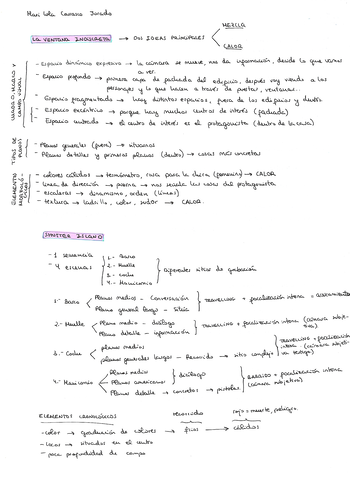 Mari Lola Carrasco Jurado
MEZCLA
LA VENTANA INDISCRETA → DOS IDEAS PRINCIPALES
CALOR
- Espacio dinámico expresivo → la cámara se mueve, nos da información, desde lo que vamos a ver.
- Espacio profundo → primera capa de fachada del edificio, después voy viendo a los personajes y lo que hacen a través de puertas, ventanas...
- Espacio fragmentado → hay distintos espacios, fuera de los edificios y dentro
- Espacio excéntrico → porque hay muchos centros de interés (fachada)
- Espacio centrado → el centro de interés es el protagonista (dentro de la casa)
TIPOS DE PLANOS
- Planos generales (fuera) → situarnos
- Planos detalles y primeros planos (dentro) → cosas más concretas
- colores cálidos → termómetro, rosa para la chica → CALOR
- línea de dirección → pierna → nos
- escaleras → dinamismo, orden (líneas)
- textura → ladrillo, color, sudor → CALOR.
SHUTTER ISLAND
- 1 secuencia
- 4 escenas
1.- Barco
2.- Muelle
3.- Coche
4.- Manicomio
diferentes sitios de grabación
1.- Barco
Planos medios - Conversación
Planos general largo - Isla
travelling + focalización interna =
2.- Muelle
Planos medio - diálogo
Planos detalle - información
travelling + focalización interna (cámara subjetiva)
3.- Coche
planos medios
planos generales largos - Recorrido → sitio complejo
travelling + focalización interna (cámara subjetiva)
4.- Manicomio
Planos medios
Planos americanos
diálogo
Planos detalle → concretos → pistolas
+ focalización interna (cámara subjetiva)
ELEMENTOS
rojo = muerte, peligro
- color → graduación de colores → fríos → cálidos
- locos → situados en el centro
- poca profundidad de campo